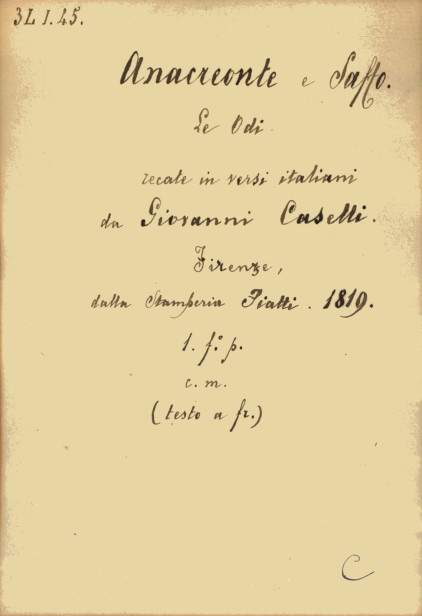 3L I.45.
Anacreonte e Saffo.
Le Odi
recate in versi italiani
da Giovanni Caselli.
Firenze,
dalla Stamperia Piatti. 1819.
1. f.º p.
c. m.
(testo a fr.)
C